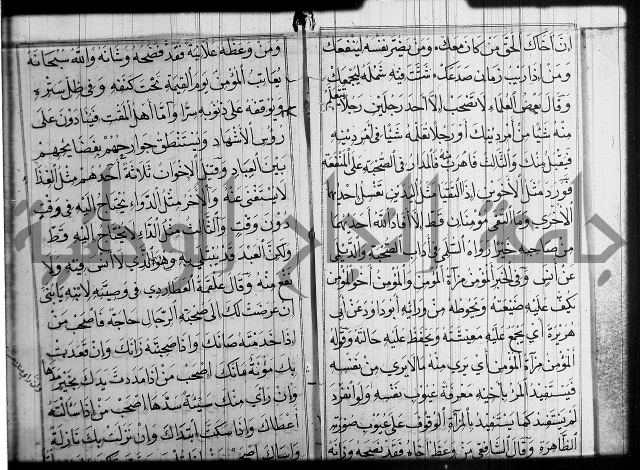 انّ أخاك الحقّ من كان معك ومن يضرّ نفسه لينفعك
ومن اذا ريب زمان صدعك شتّت فيه شمله ليجمعك
وقال بعض العلماء لا تصحب الا أحد رجلين رجلا تتعلم
منه شيأ من أمر دينك أو رجلا تعلمه شيأ في أمر دينه
فيقبل منك والثالث فاهرب منه فالمدار في الصحبة على المنفعة
فورد مثل الأخوين اذا التقيا مثل اليدين تغسل احداهما
الأخرى وما التقى مؤمنان قط الا أفاد الله أحدهما
من صاحبه خيرا رواه السلمي في داب الصحبة والديلمي
عن أنس وفي الخبر المؤمن مرآة المؤمن والمؤمن أخو المؤمن
يكف عليه ضيعته ويحوطه من ورائه أبو داود عن أبي
هريرة أي يجمع عليه معيشته ويحفظ عليه حالته وقوله
المؤمن مرآة المؤمن أي يرى منه مالا يرى من نفسه
فيستفيد المرء بأخيه معرفة عيوب نفسه ولو انفرد
لم يستفيد كما يستفيد بالمرآة الوقوف على عيوب صورته
الظاهرة وقال الشافعي من وعظ أخاه فقد نصحه وزانه
ومن وعظه علانية فقد فضحه وشانه والله سبحانه
يعاتب المؤمن يوم القيمة تحت كنفه وفي ظل ستره
ويوقفه على ذنوبه سرا وأما أهل المقت فينادون على
رؤس الأشهاد ويستنطق جوارحهم بفضايحهم
بين العباد وقيل الاخوان ثلاثة أحدهم مثل الغذاء
لا يستغنى عنه والآخر مثل الدواء يحتاج اليه في وقت
دون وقت والثالث مثل الداء لا يحتاج اليه قط
ولكن العبد قد يبتلى به وهو الذي لا أنس فيه ولا
نفع منه وقال علقمة العطاردي في وصيته لابنه يا بني
ان عرضت لك الى صحبة الرجال حاجة فاصحب من
اذا خدمته صانك واذا صحبته زانك وان قعدت
بك مؤنة مانك اصحب من اذا مددت يدك بخير مدها
وان رأى منك سيئة سدها اصحب من اذا سألته
أعطاك واذا سكتّ ابتداك وان نزلت بك نازلة
جامعة النجاح الوطنية